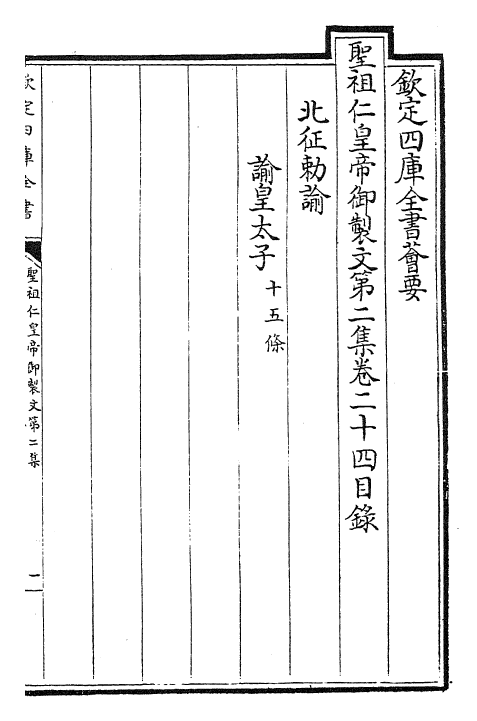 欽定四庫全書薈要
聖祖仁皇帝御製文第二集卷二十四目錄
北征勅諭
諭皇太子十五條
欽定四庫全書
聖祖仁皇帝御製文第二集